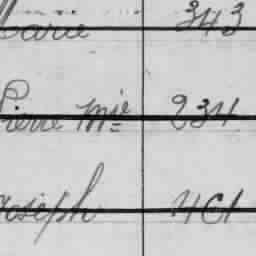 Marie 343
Pierre Mie 234
Joseph 401